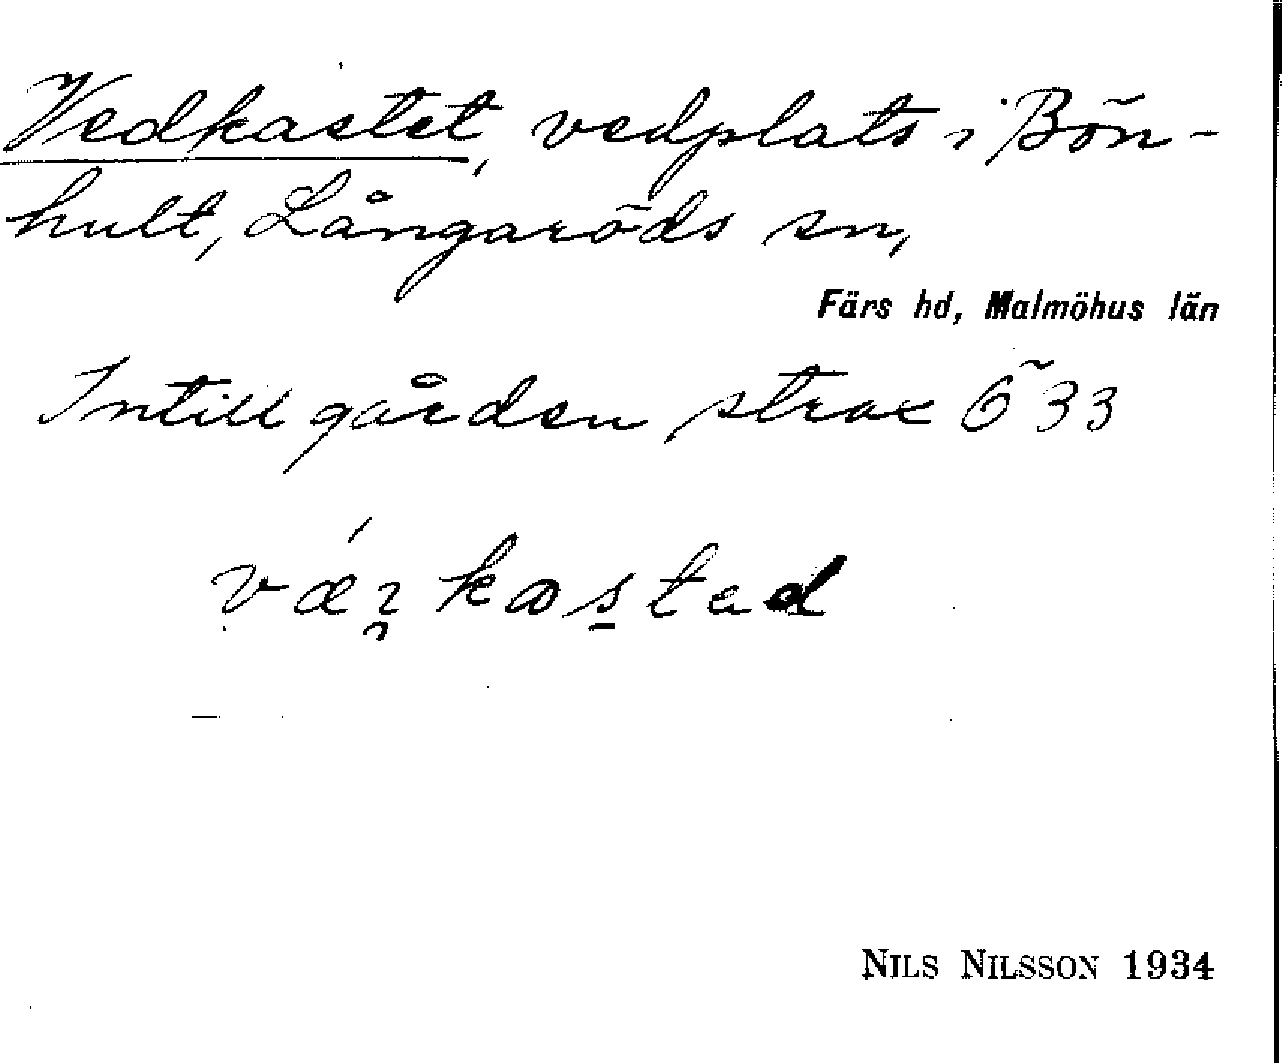 Vedkastet, vedplats i Bön-
hult, Långaröds sn,
Färs hd, Malmöhus län
Intill gården, strax Ö 33
NILS NILSSON 1934